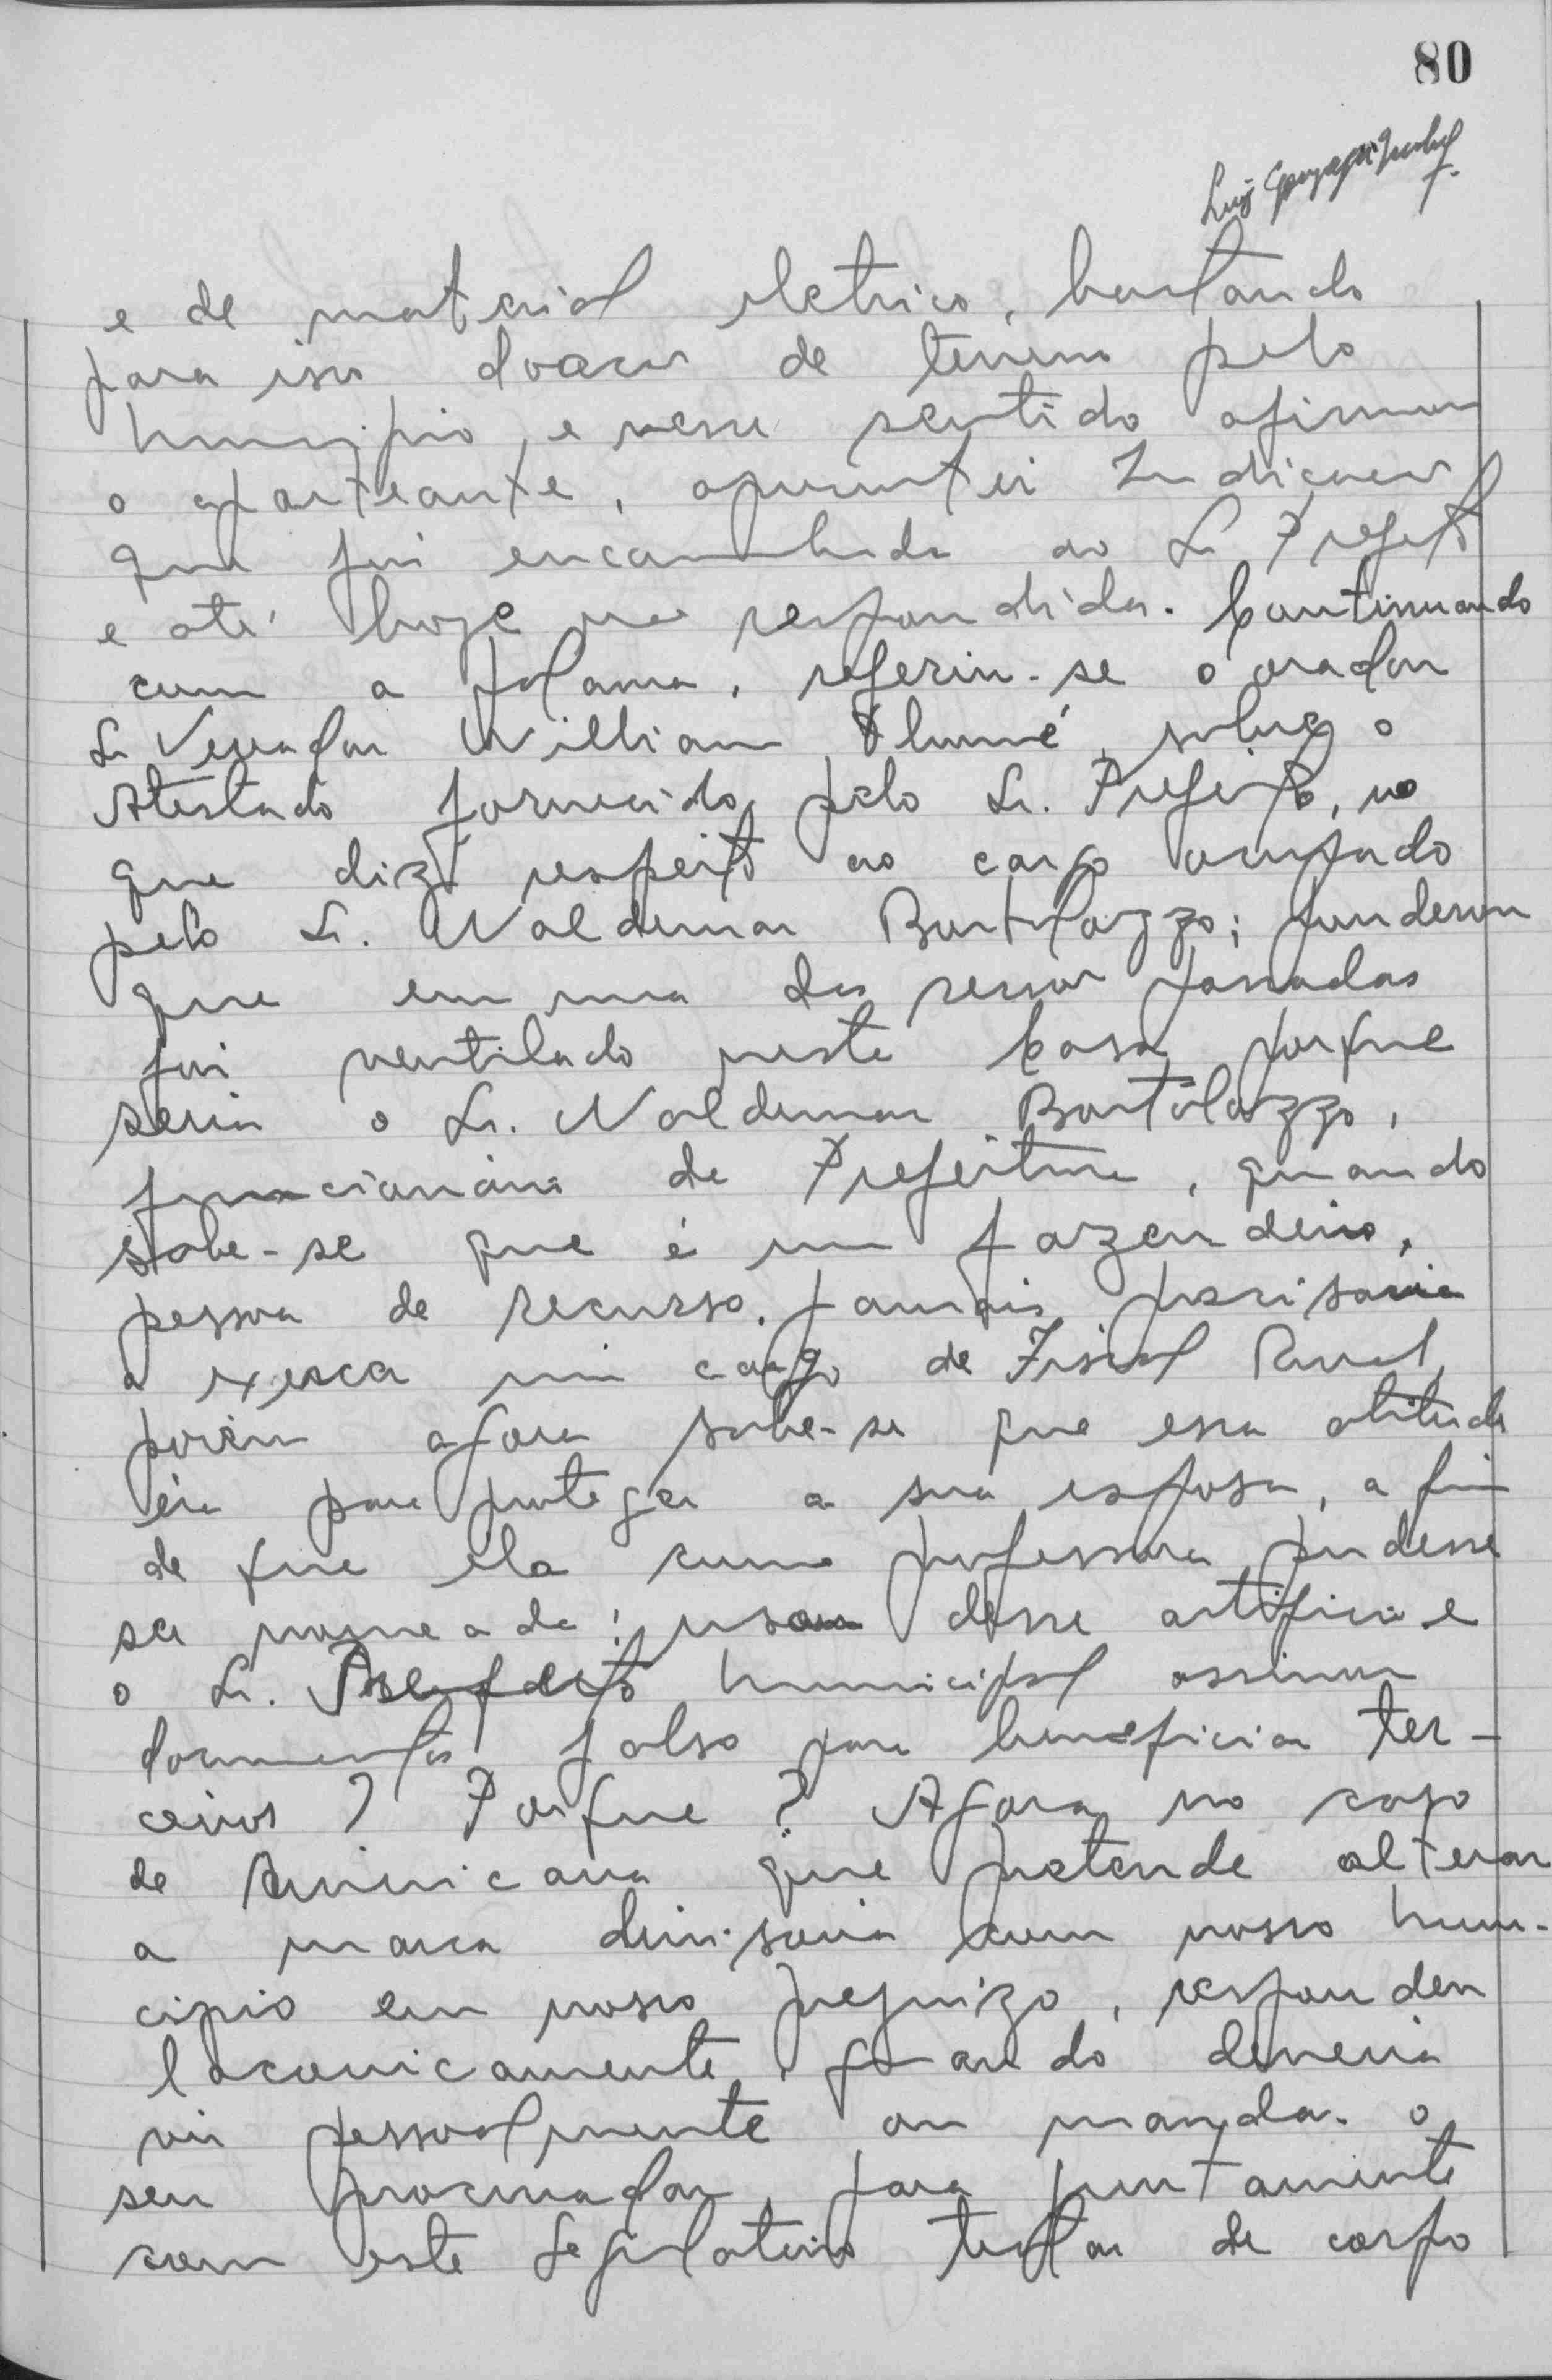 80
Luiz Gonzaga
e de material eletrico, bastando
para isso doacão de terreno pelo
Municipio, e nesse sentido afirmou
o aparteante, apresentei Indicacão
que foi encaminhada ao Sr Prefeito
e até hoje não respondida. Continuando
com a palavra, referiu-se o orador
Sr Vereador William sobre o
Atestado fornecido pelo Sr. Prefeito, no
que diz respeito ao cargo ocupado
pelo Sr. Waldemar Bortolazzo; ponderou
que em uma das sessões passadas
foi ventilado nesta Casa porque
seria o Sr. Waldemar Bortolazzo,
funcionário da Prefeitura, quando
sabe-se que é um fazendeiro,
pessoa de recurso, jamais precisaria
a exercer um cargo de Fiscal Rural,
porém agora sabe-se que essa atitude
éra para proteger a sua esposa, a fim
de que ela como professora pudesse
ser nomeada; usou desse artificio e
o Sr. Prefeito Municipal assinou
documentos falso para beneficiar ter-
ceiros? Porque? Agora no caso
de Americana que pretende alterar
a marca divisoria com nosso Muni-
cipio em nosso prejuizo, respondeu
laconicamente, quando deveria
vir pessoalmente ou mandar o
seu procurador, para juntamente
com este Legislativo tratar de corpo